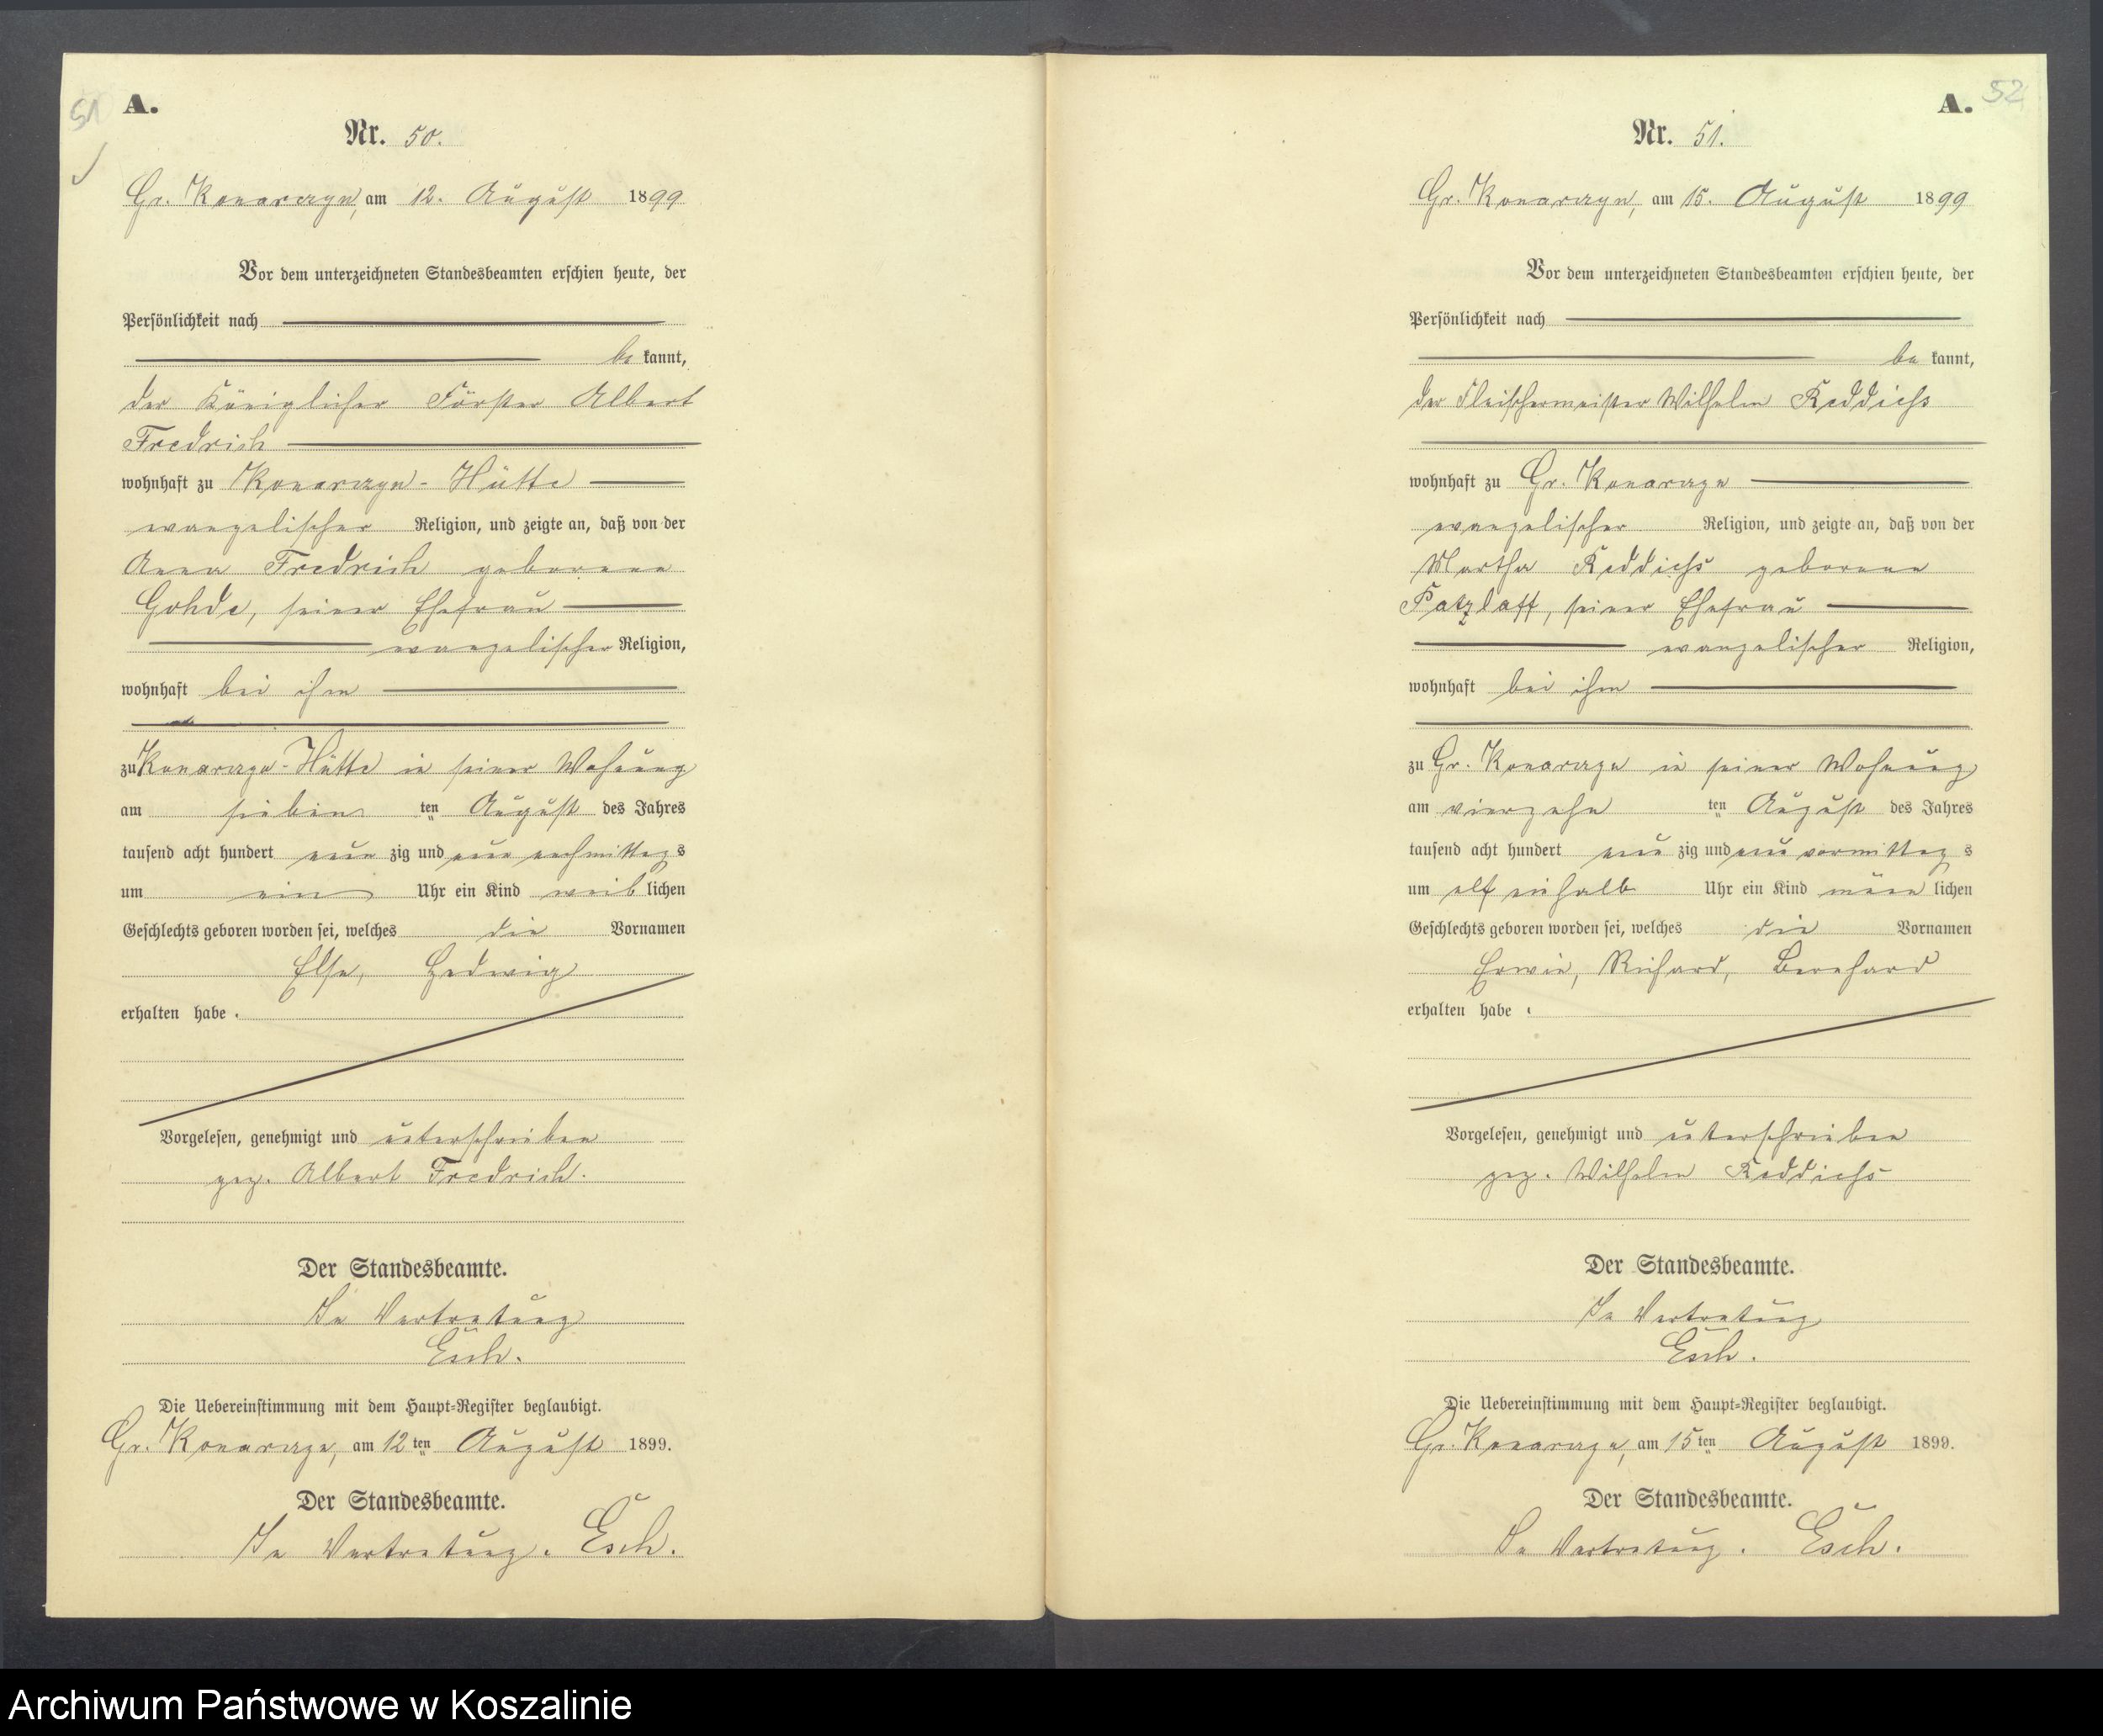 51
A.
Nr. 50.
Gr. Konarczyn, am 12. August 1899
Vor dem unterzeichneten Standesbeamten erschien heute, der
Persönlichkeit nach
be kannt,
der Königlicher Förster Albert
Fredrich
wohnhaft zu Konarczyn-Hütte
evangelischer Religion, und zeigte an, daß von der
Anna Fredrich geborene
Gohde, seiner Ehefrau
evangelischer Religion,
wohnhaft bei ihm
zu Konarczyn-Hütte in seiner Wohnung
am sieben ten August des Jahres
tausend acht hundert neun zig und neun nachmittag s
um ein Uhr ein Kind weib lichen
Geschlechts geboren worden sei, welches die Vornamen
Else, Hedwig
erhalten habe.
Vorgelesen, genehmigt und unterschrieben
gez. Albert Fredrich.
Der Standesbeamte.
In Vertretung
Esch.
Die Uebereinstimmung mit dem Haupt-Register beglaubigt.
Gr. Konarczyn, am 12 ten August 1899.
Der Standesbeamte.
In Vertretung. Esch.
A. 52
Nr. 51.
Gr. Konarczyn, am 15. August 1899
Vor dem unterzeichneten Standesbeamten erschien heute, der
Persönlichkeit nach
be kannt,
der Fleischermeister Wilhelm Reddichs
wohnhaft zu Gr. Konarczyn
evangelischer Religion, und zeigte an, daß von der
Martha Reddichs geborene
Patzlaff, seiner Ehefrau
evangelischer Religion,
wohnhaft bei ihm
zu Gr. Konarczyn in seiner Wohnung
am vierzehn ten August des Jahres
tausend acht hundert neun zig und neun vormittag s
um elf einhalb Uhr ein Kind männ lichen
Geschlechts geboren worden sei, welches die Vornamen
Erwin, Richard, Bernhard
erhalten habe.
Vorgelesen, genehmigt und unterschrieben
gez. Wilhelm Reddichs
Der Standesbeamte.
In Vertretung
Esch.
Die Uebereinstimmung mit dem Haupt-Register beglaubigt.
Gr. Konarczyn, am 15 ten August 1899.
Der Standesbeamte.
In Vertretung. Esch.
Archiwum Państwowe w Koszalinie